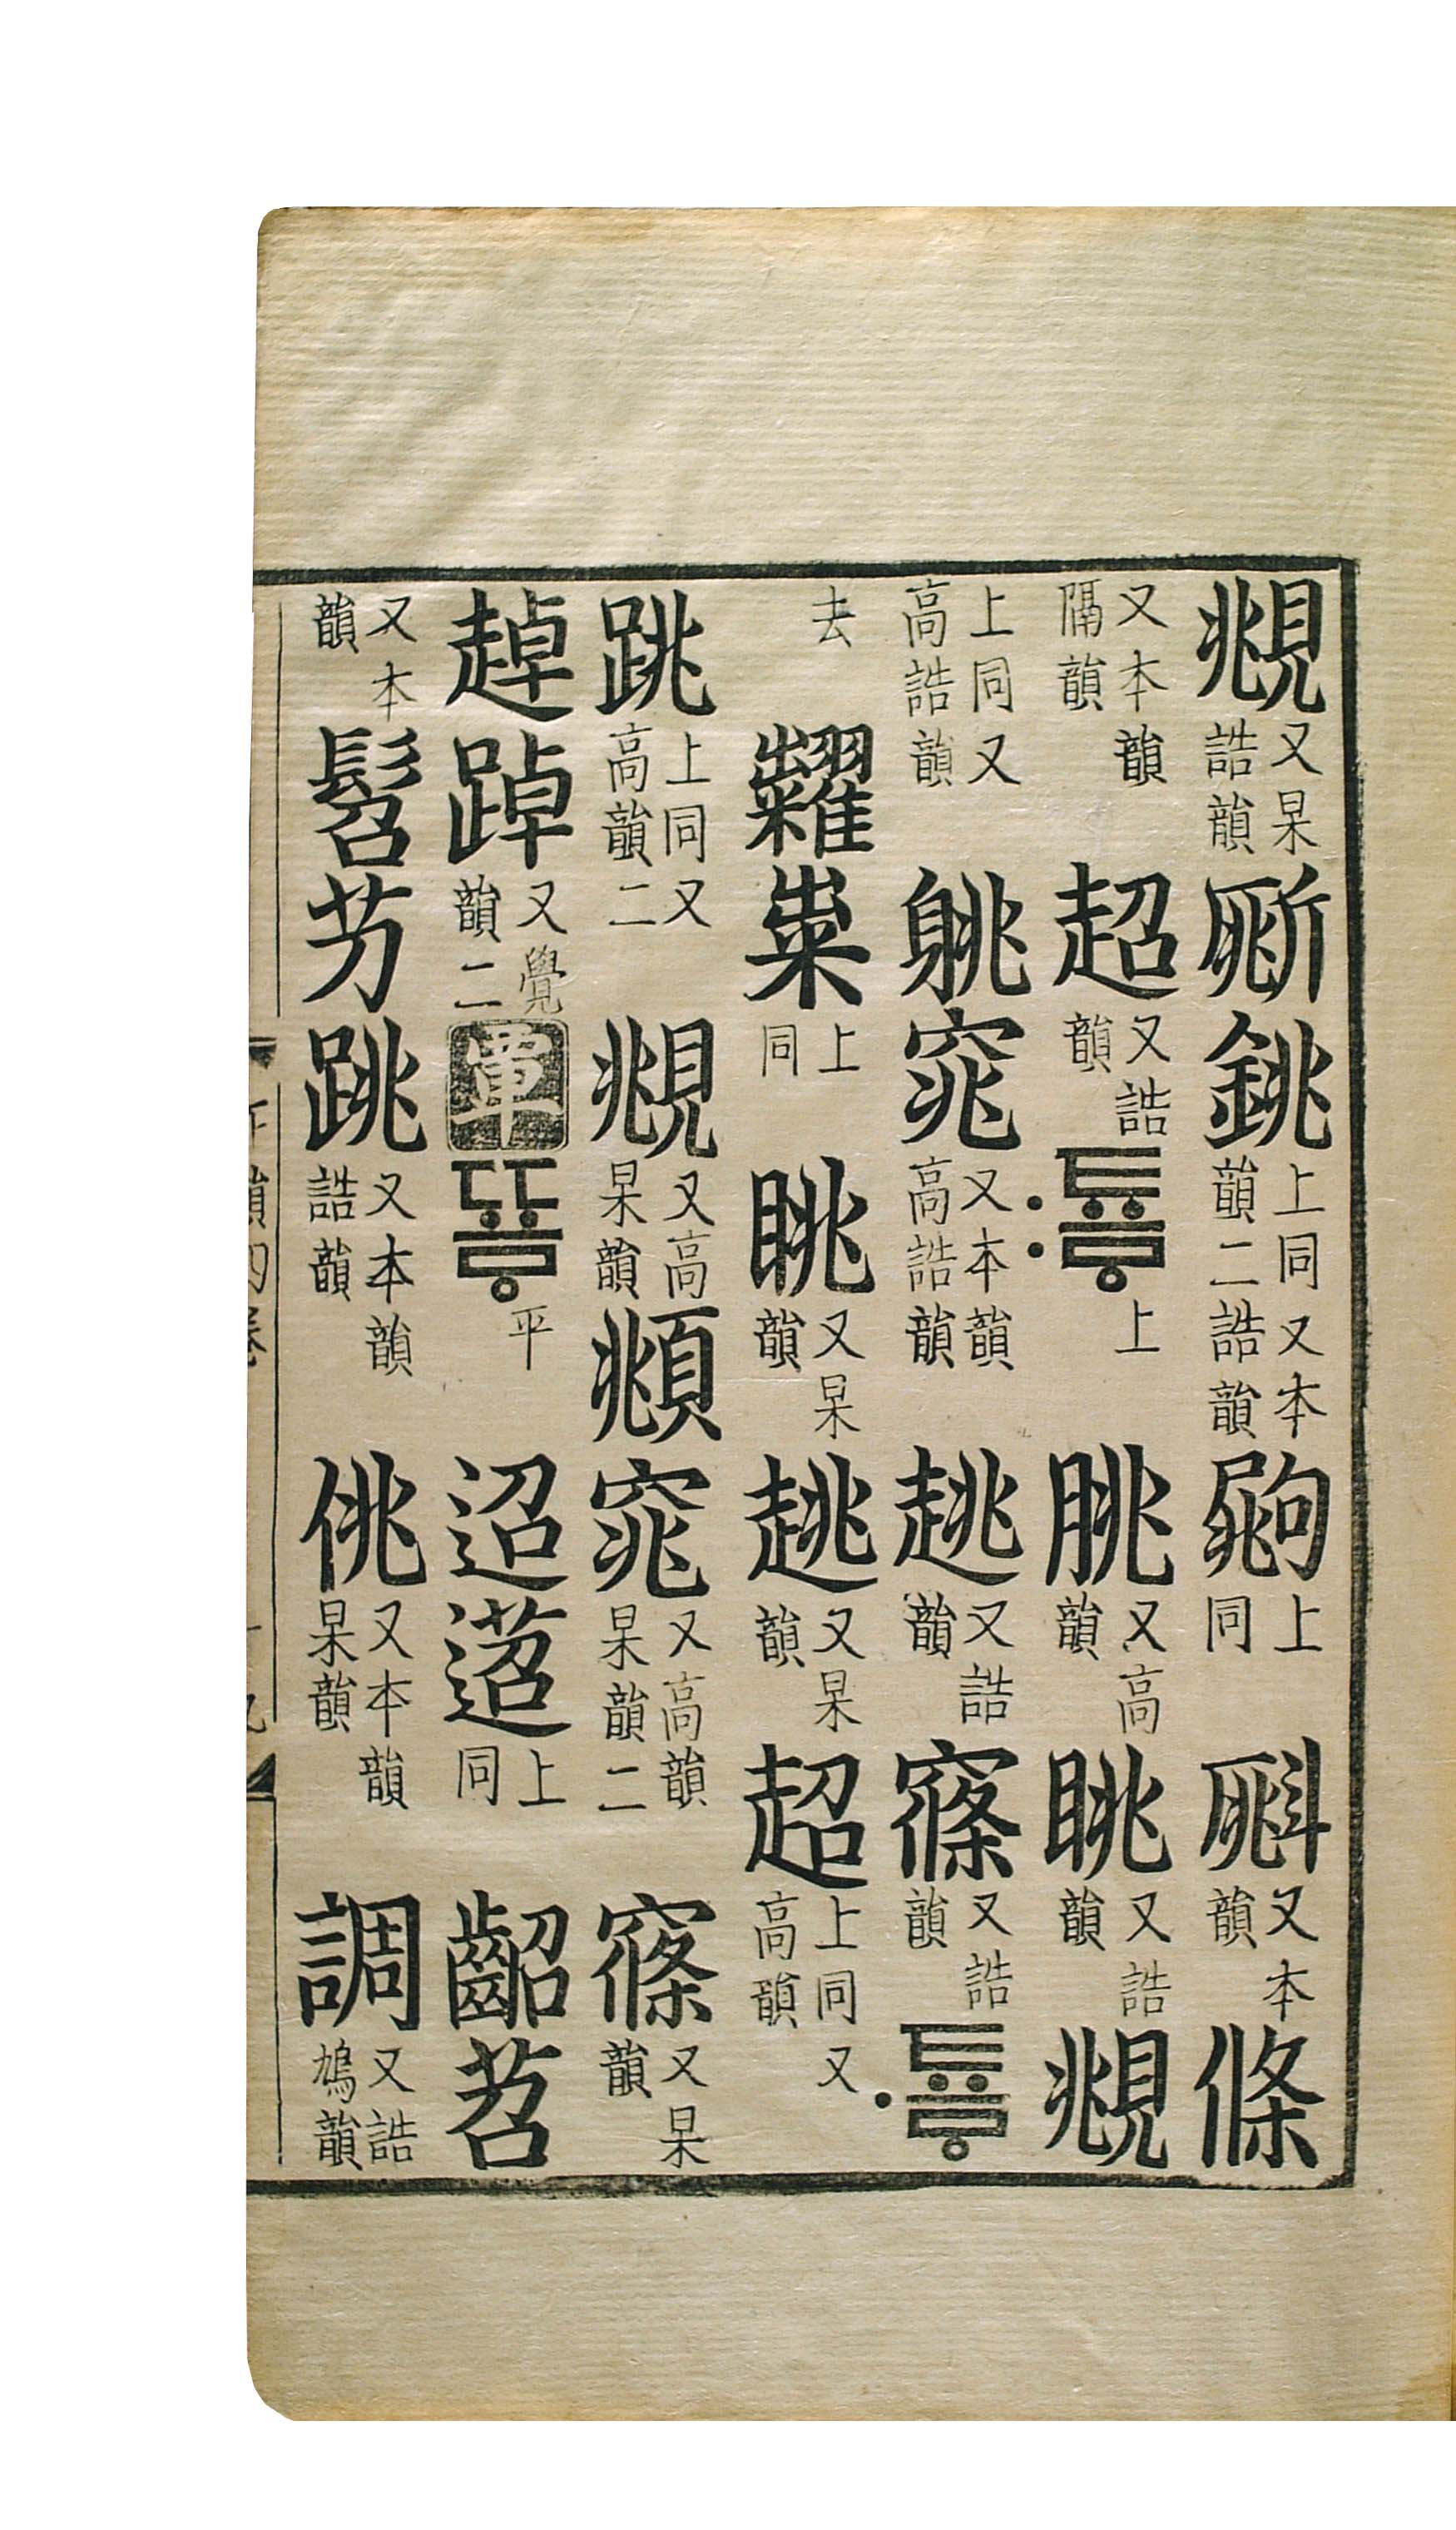 覜又杲誥韻銚上同又本韻二誥韻上同又本韻條
又本韻隔韻超又誥韻:툐ᇢ上朓又高韻眺又誥韻覜
上同又高誥韻䠷窕又本韻高誥韻趒又誥韻窱又誥韻·툐ᇢ
去糶粜上同眺又杲韻趒又杲韻超上同又高韻
跳上同又高韻二覜又高杲韻頫窕又高韻杲韻二窱又杲韻
趠踔又覺韻二覃뚀ᇢ平迢上同齠苕
又本韻髫芀跳又本韻誥韻佻又本韻杲韻調又誥鳩韻